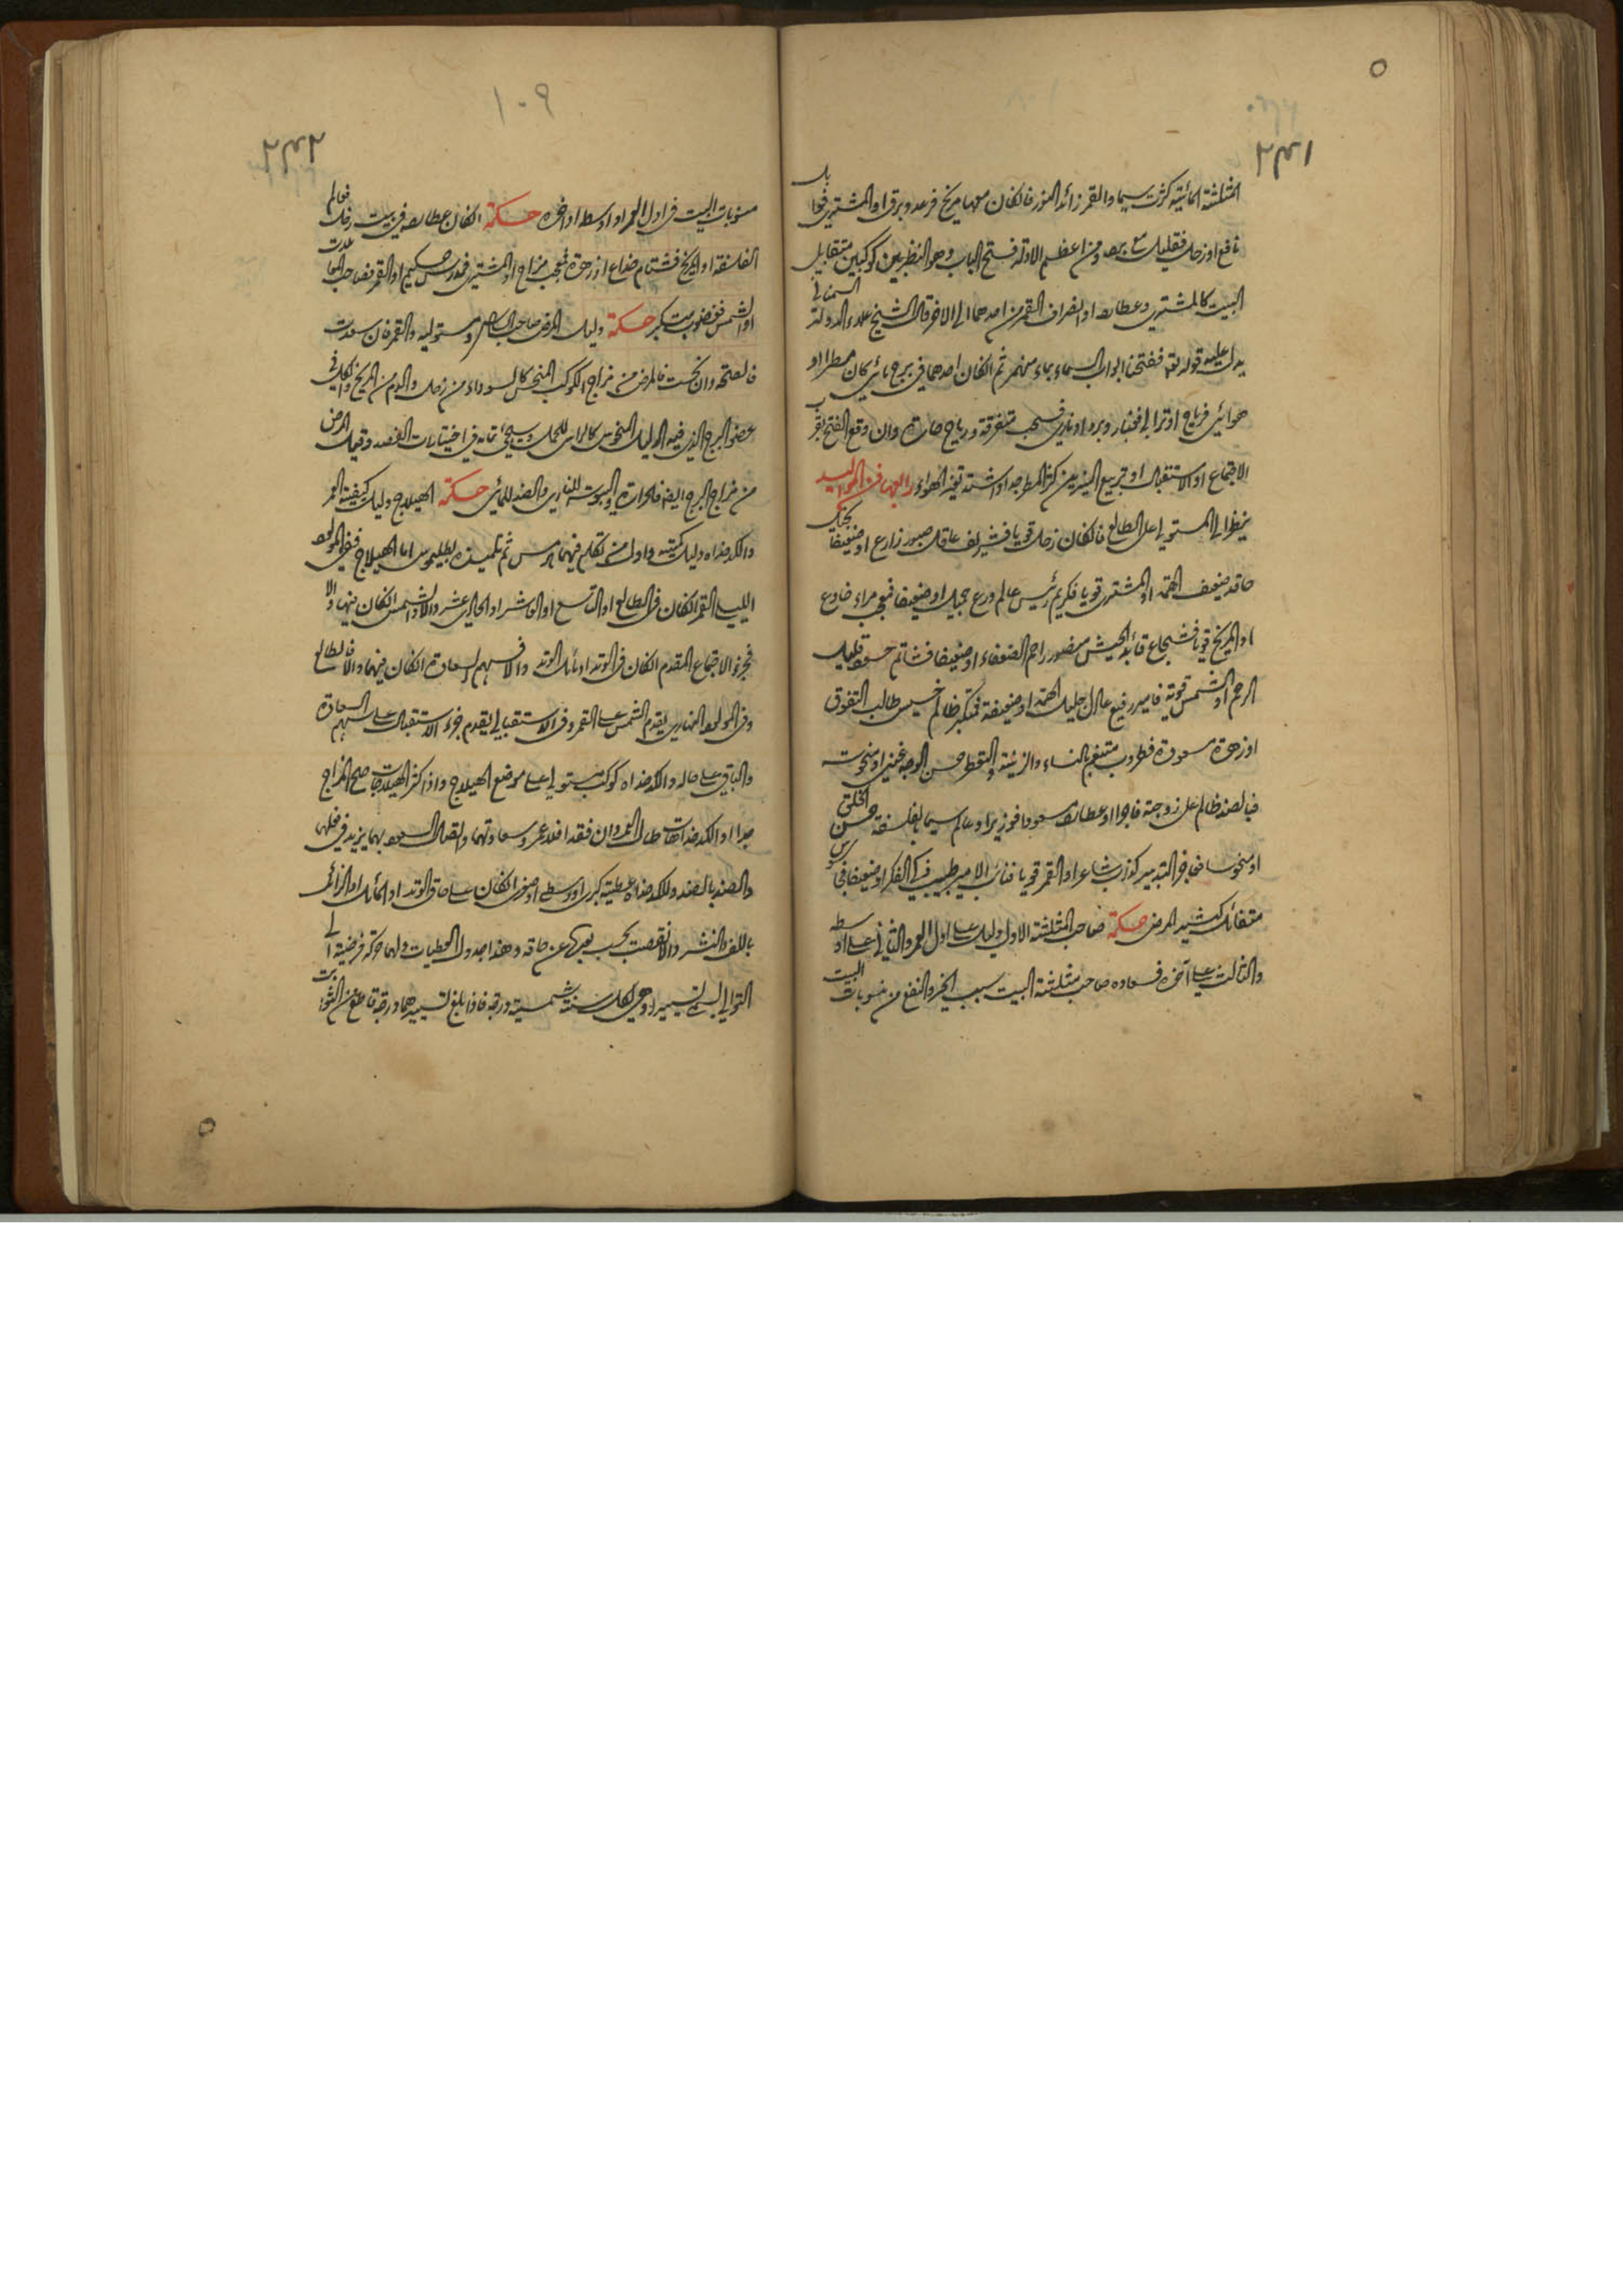 المثلثة المائية كثرت سيما والقمر زائد النور فالكان معها مريخ فرعد وبرق او المشتري فوابل
نافع او زحل فقليل مع برد ومن اعظم الادلة فتح الباب وهو النظر بين كوكبين متقابلي
البيت كالمشتري وعطارد او انصراف القمر من احدهما الى الاخر قال الشيخ علاء الدولة السمناني
يدل عليه قوله تعم ففتحنا ابواب السماء بماء منهمر ثم الكان احدهما في برج مائي كان ممطرا او
هوائي فرياح او ترابي فغبار وبرد او ناري فسحب متفرقة ورياح حارة وان وقع الفتح بقرب
الاجتماع او الاستقبال او تربيع النيرين كثر المطر جدا واشتد تغير الهواء رابعها فن المواليد
ينظر الى المستولي على الطالع فالكان زحل قويا فشريف عاقل صبور زارع او ضعيفا بخيل
حاقد ضعيف الهمة او المشتري قويا فكريم رئيس عالم ورع جميل او ضعيفا فمعجب مراء خادع
او المريخ قويا فشجاع قائد الجيش منصور راحم الضعفاء او ضعيفا فشاتم حسود قليل
الرحم او الشمس قوية فامير رفيع عادل جليل الهمة او ضعيفة فمتكبر ظالم خسيس طالب التفوق
او زهرة مسعودة فطروب متنعم بالنساء والزينة والتعطر حسن الوجه غني او منحوسة
فبالضد ظالم على زوجته فاجرا او عطارد مسعودا فوزير او عالم سيما بالفلسفة حسن الخلق
او منحوسا فعاجز التدبير كذاب شاعر او القمر قويا فنائب الامير طبيب ذكي الفكر او ضعيفا
متفائل شديد المرض حكمة صاحب المثلثة الاول دليل على اول العمر والثاني على اوسطه
والثالث على آخره فسعادة صاحب مثلثة البيت سبب الخير والنفع من منسوبات البيت
منسوبات البيت في اول العمر او اوسطه او اخره حكمة الكان عطارد في بيت زحل فعالم
الفلسفة او المريخ فشتام خداع او زهرة فمعجب مزاح او المشتري فمدرس حكيم او القمر فصاحب
او الشمس فغضوب متكبر حكمة دليل المرض صاحب السادس ومستوليه والقمر فان سعدت
فالصحة وان نحست فالمرض من مزاج الكوكب النحس كالسوداء من زحل والدم من المريخ والكل في
عضو البرج الذي فيه الدليل المنحوس كالراس للحمل وسيجئ تمامه في اختيارات الفصد وقيل المرض
من مزاج البرج ايضا فالحرارة واليبوسة للناري والضد للمائي حكمة الهيلاج دليل كيفية العمر
والكدخداه دليل كميته واول من تكلم فيهما هرمس ثم تلميذه بطليموس اما الهيلاج ففي المولود
الليلي القمر الكان في الطالع او التاسع او العاشر او الحادي عشر والا فالشمس الكان فيها والا
فجزء الاجتماع المقدم الكان في الوتد او مائل الوتد والا فسهم السعادة الكان فيهما والا فالطالع
وفي المولود النهاري يقدم الشمس على القمر وفي الاستقبالي يقدم جزء الاستقبال على سهم السعادة
والباقي على حاله والكدخداه كوكب مستولي على موضع الهيلاج واذا كثر الهيلاجات صلح المزاج
جدا او الكدخدات طال العمر وان فقدا فلا عمر وسعادتهما واتصال السعود بهما يزيد في فعلهما
والضد بالضد وللكدخداه عطية كبرى او وسطى او صغرى الكان على حاق الوتد او المائل او الزائل
باللف والنشر والا نقصت بحسب بعده عن حاقه وهذا جدول العطيات ولهما حركة فرضية الى
التوالي تسمى تسييرا وهي لكل سنة شمسية درجة فاذا بلغ تسييرهما درجة قاطع من الثوابت
١٠٩